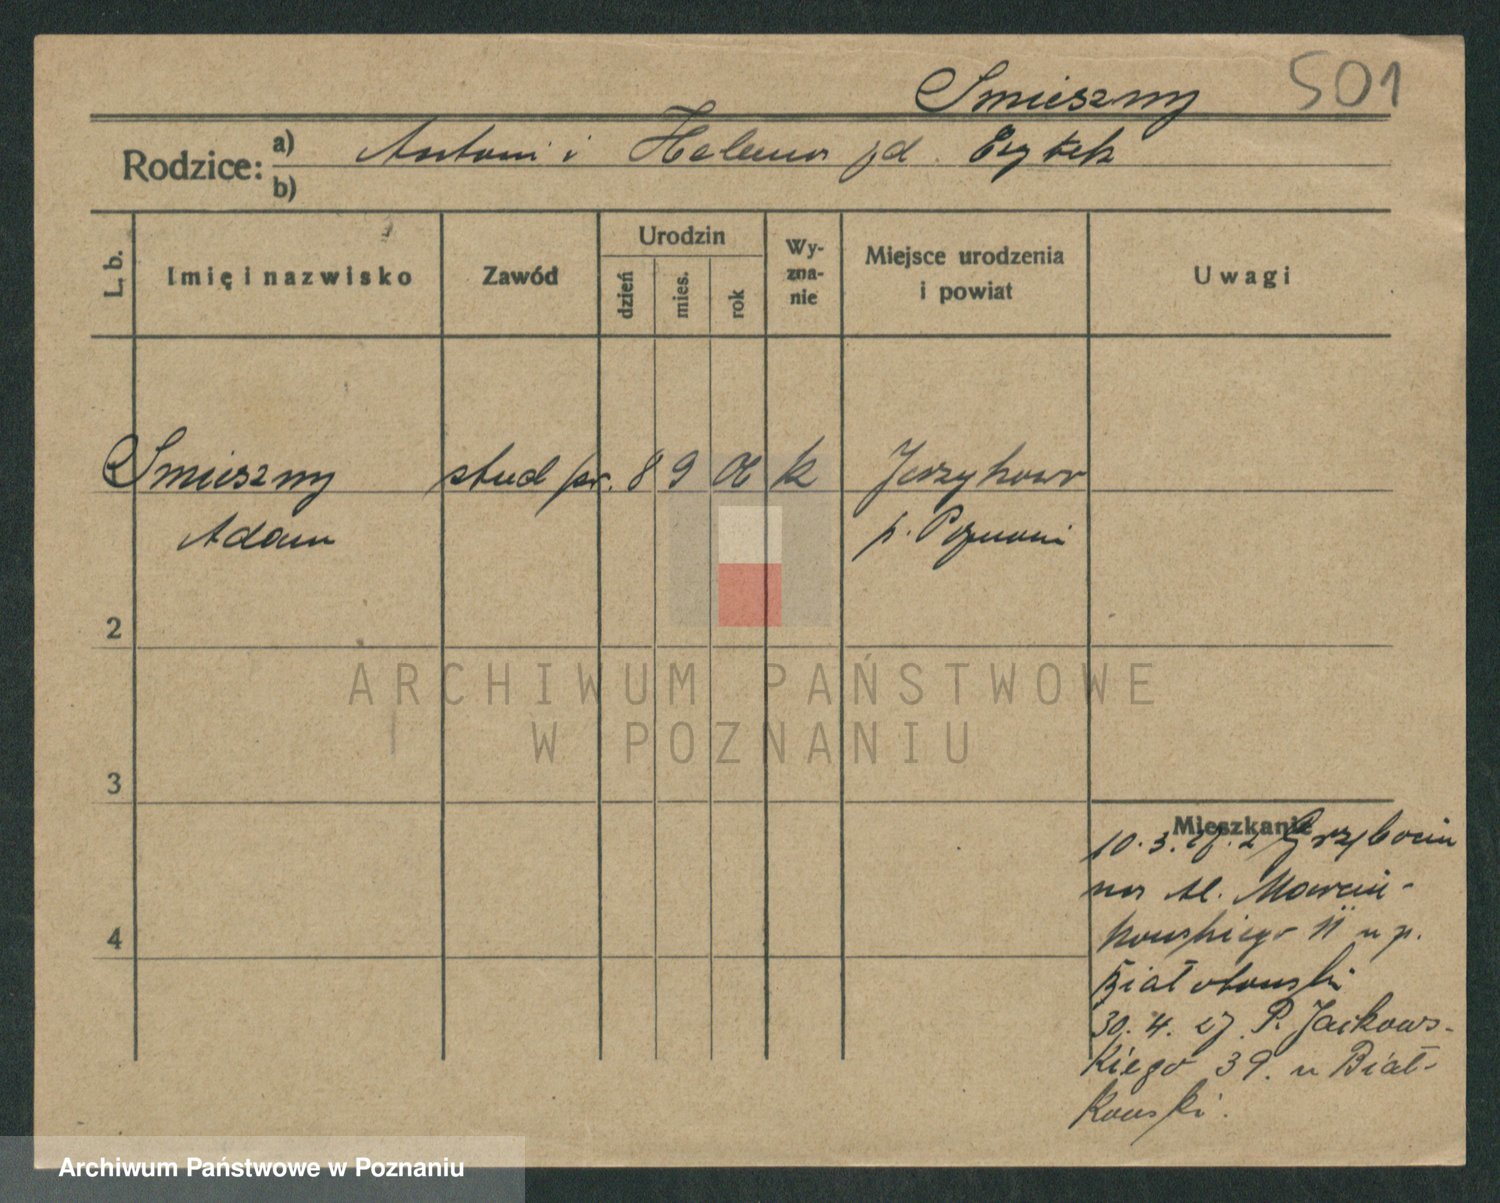 Smieszny 501
Rodzice: a) Antoni i Helena jd.
b)
L. b. Imię i nazwisko Zawód Urodzin dzień mies. rok Wyznanie Miejsce urodzenia i powiat Uwagi
Smieszny stud pr. 8 9 06 k Jerzykowo
Adam p. Poznań
2
3
4
Mieszkanie
10.3.27. z
na M. Marcin-
kowskiego 11 u p.
30.4.27. P. Jackows-
kiego 39. u Biał-
kowski.
ARCHIWUM PAŃSTWOWE
W POZNANIU
Archiwum Państwowe w Poznaniu